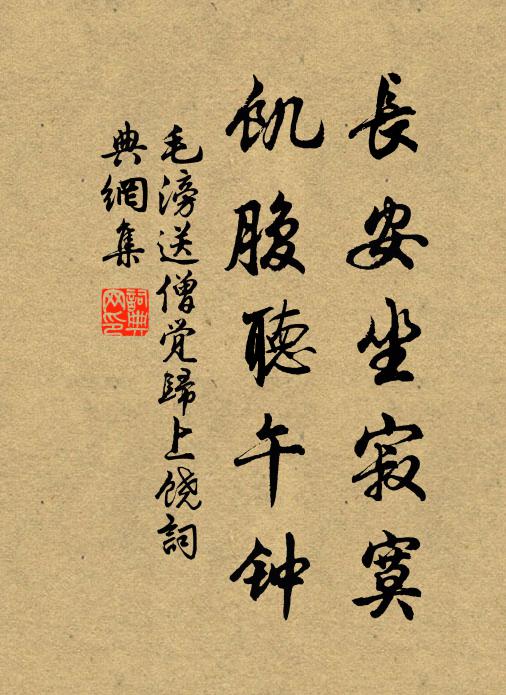 長安坐寂寞
飢腹聽午钟
毛滂送僧覚歸上饒詞
典網集
詞典
网印